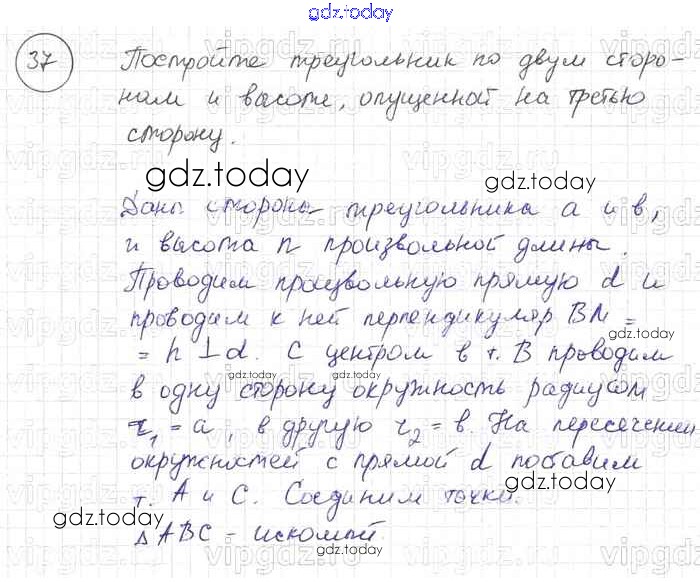 gdz.today
37
Постройте треугольник по двум сторо-
нам и высоте, опущенной на третью
сторону.
gdz.today
gdz.today
Даны стороны треугольника a и b,
и высота h произвольной длины.
Проводим произвольную прямую d и
проводим к ней перпендикуляр BN =
gdz.today
= h ⊥ d. С центром в т. B проводим
gdz.today
в одну сторону окружность радиусом
r₁ = a, в другую r₂ = b. На пересечении
gdz.today
окружностей с прямой d поставим
т. A и C. Соединим точки.
gdz.today
gdz.today
Δ ABC - искомый.
gdz.today